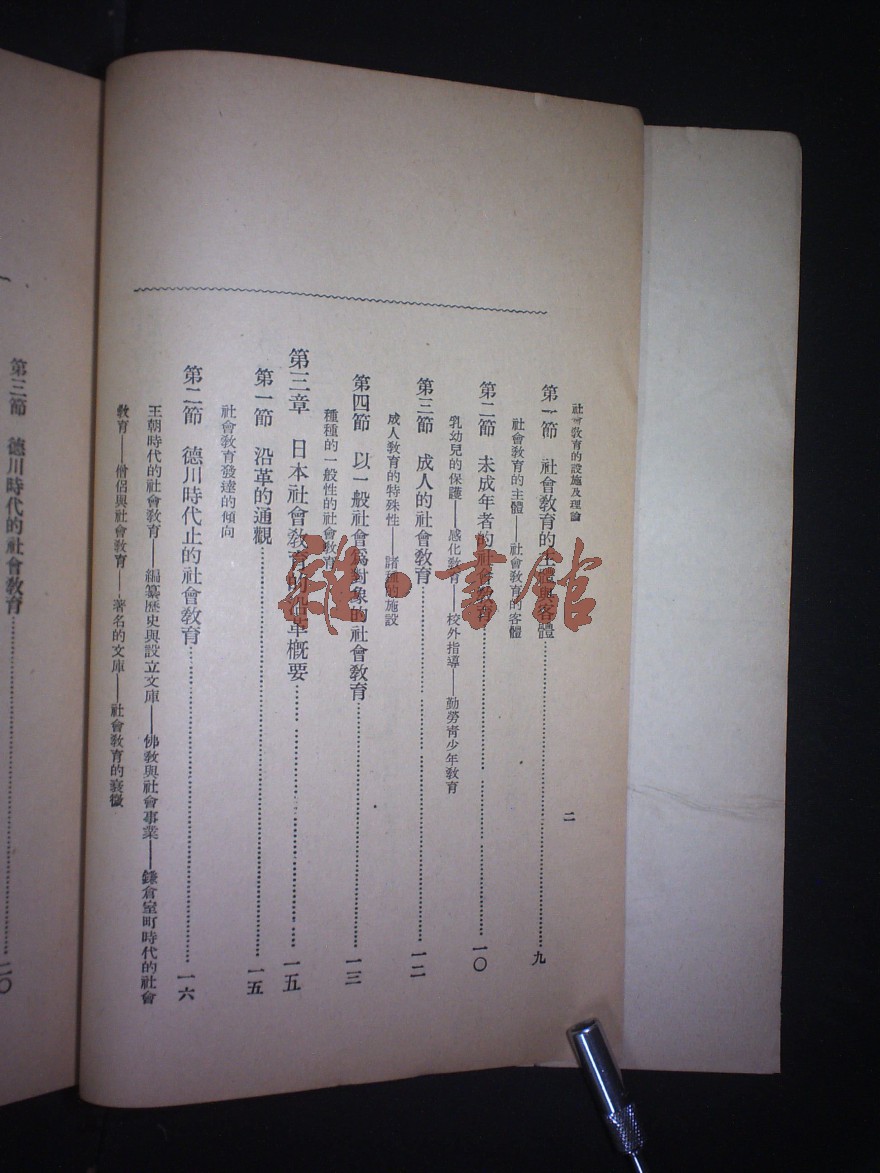 社會教育的設施及理論
二
第一節　社會教育的主體與客體……九
社會教育的主體——社會教育的客體
第二節　未成年者的社會教育……一〇
乳幼兒的保護——感化教育——校外指導——勤勞青少年教育
第三節　成人的社會教育……一二
成人教育的特殊性——諸種的施設
第四節　以一般社會爲對象的社會教育……一三
種種的一般性的社會教育
第三章　日本社會教育的沿革概要……一五
第一節　沿革的通觀……一五
社會教育發達的傾向
第二節　德川時代止的社會教育……一六
王朝時代的社會教育——編纂歷史與設立文庫——佛教與社會事業——鎌倉室町時代的社會
教育——僧侶與社會教育——著名的文庫——社會教育的衰微
第三節　德川時代的社會教育……二〇
雜·書館